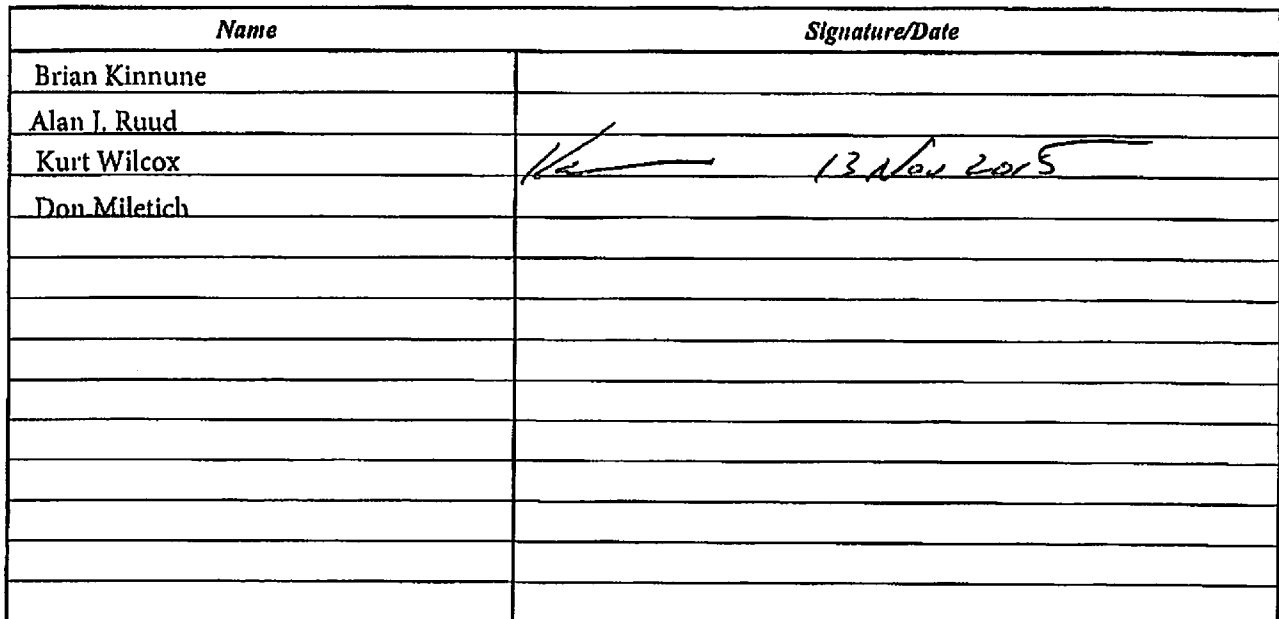 Name Signature/Date
Brian Kinnune
Alan J. Ruud
Kurt Wilcox 13 Nov 2015
Don Miletich